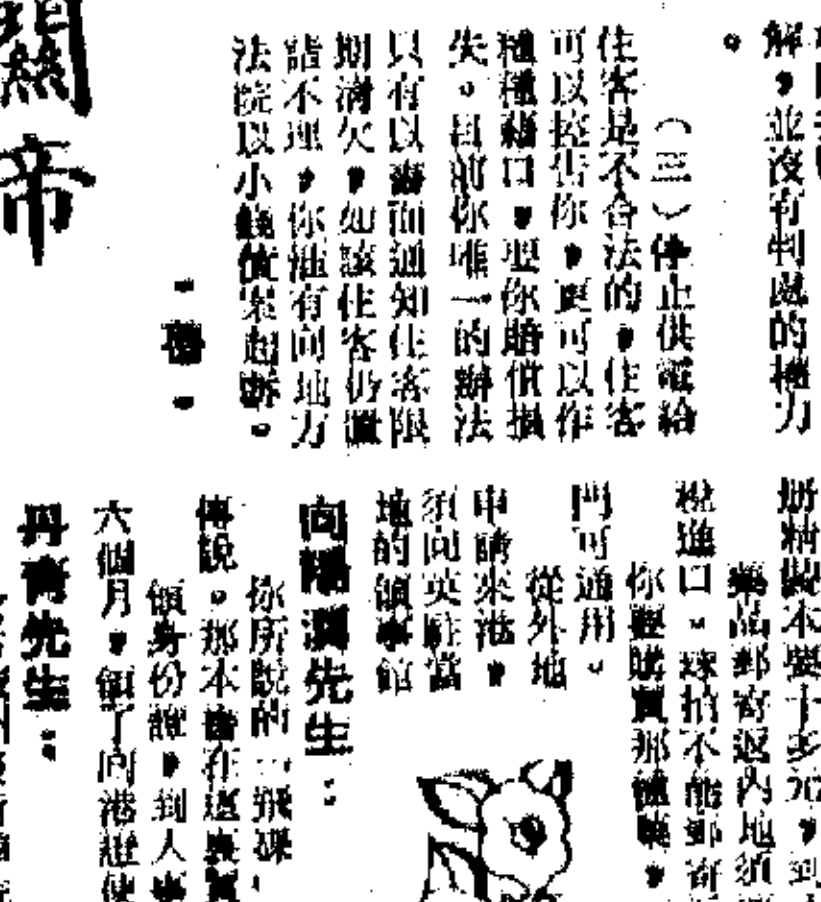 解，並沒有判處的權力
。
（三）停止供電給
住客是不合法的，住客
可以控告你，更可以作
種種藉口，要你賠償損
失。目前你唯一的辦法
只有以書面通知住客限
期清欠，如該住客仍置
諸不理，你惟有向地方
法院以小錢債案起訴。
帝
册精裝本要十多元，到
藥品郵寄返內地須
稅進口。辣椒不能郵寄
你要購買那種藥，
門可通用。
從外地
申請來港，
須向英駐當
地的領事館
向陽潤先生：
你所說的「飛碟」
傳說。那本書在這裏買
領身份證，到人
六個月，領了回港證使
丹青先生：